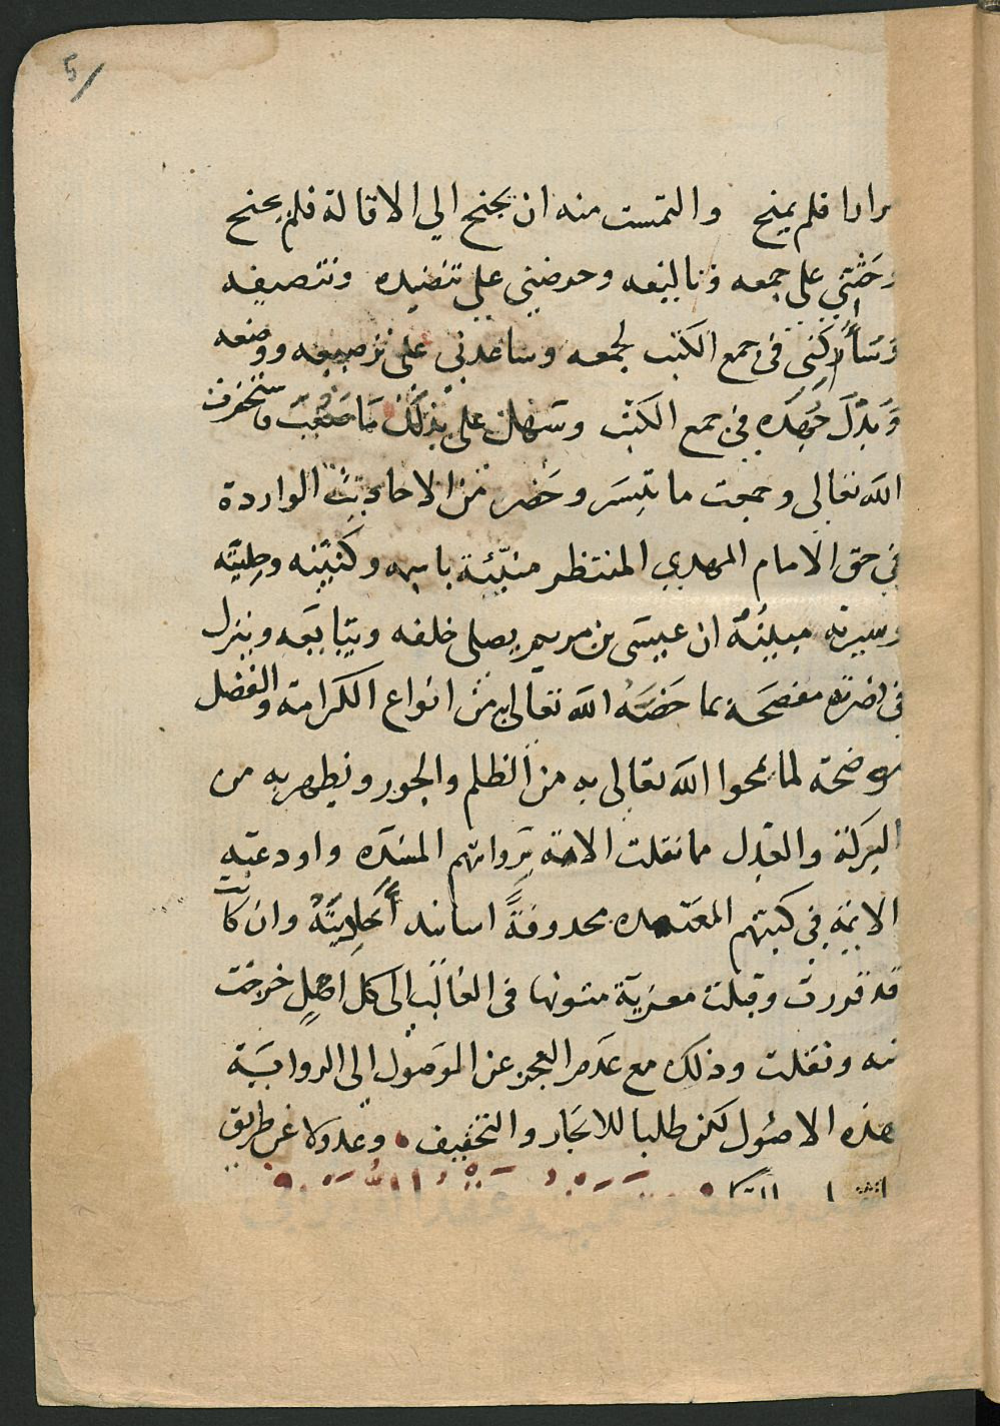 5/
مرارا فلم يمنح والتمست منه ان يجنح الي الاقالة فلم يجنح
وحثني علي جمعه وتاليفه وحرضني علي تنضيده وتتصيفه
وشاركني في جمع الكتب لجمعه وساعدني علي ترصيعه ووضعه
وبذل جهده في جمع الكتب وسهل علي بذلك ما صعب فاستخرت
الله تعالى وجمعت ما تيسر وحضر من الاحاديث الواردة
في حق الامام المهدي المنتظر منبئة باسمه وكنيته وحليته
وسيرته مبينة ان عيسى بن مريم يصلى خلفه ويتابعه وينزل
في نصرته مفصحة بما خصه الله تعالى به من انواع الكرامة والفضل
موضحة لما يمحوا الله تعالى به من الظلم والجور ويظهر به من
البركة والعدل مما نقلت الامة برواتهم المسنده واودعته
الائمة في كتبهم المعتمده محدوفة اسانيد أحاديثه وان كانت
قد قورت وقبلت معزية متونها في الغالب الى كل اصل خرجت
منه ونقلت وذلك مع عدم العجز عن الموصول الى الرواية
هذه الاصول لكن طلبا للايجاز والتخفيف وعدولا عن طريق